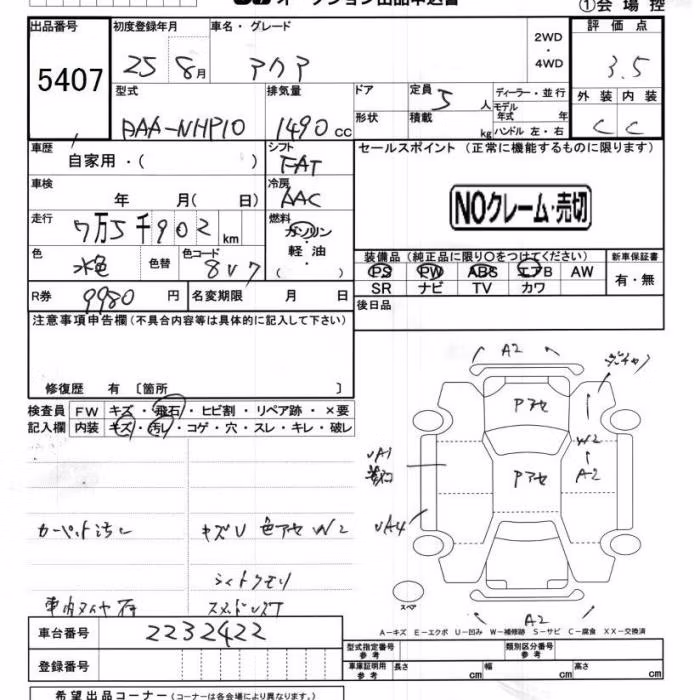 オークション出品申込書
①会場控
出品番号 初度登録年月 車名・グレード 2WD・4WD 評価点
5407 25 8月 アクア 3.5
型式 排気量 ドア 定員 5人 ディーラー・並行 外装 内装
DAA-NHP10 1490cc 形状 積載 kg モデル年式 年 ハンドル 左・右 C C
車歴 自家用・( ) シフト FAT セールスポイント (正常に機能するものに限ります)
車検 年 月( 日) 冷房 AAC
NOクレーム・売切
走行 7万5千902km 燃料 ガソリン・軽油( )
色 水色 色替 色コード 8V7
装備品 (純正品に限り○をつけてください) 新車保証書
PS PW ABS エアB AW 有・無
SR ナビ TV カワ
R券 9980円 名変期限 月 日 後日品
注意事項申告欄 (不具合内容等は具体的に記入して下さい)
修復歴 有 〔箇所 〕
検査員 FW キズ・飛石・ヒビ割・リペア跡・×要
記入欄 内装 キズ・汚レ・コゲ・穴・スレ・キレ・破レ
A2
Pアセ
W2
A-2
UA1
Pアセ
UA4
カーペット汚レ キズU 色アセ W2
スペア
A2
A-キズ E-エクボ U-凹み W-補修跡 S-サビ C-腐食 XX-交換済
車台番号 2232422
型式指定番号 参考 類別区分番号 参考
登録番号 車庫証明用 参考 長さ cm 幅 cm 高さ cm
希望出品コーナー (コーナーは各会場により異なります。)